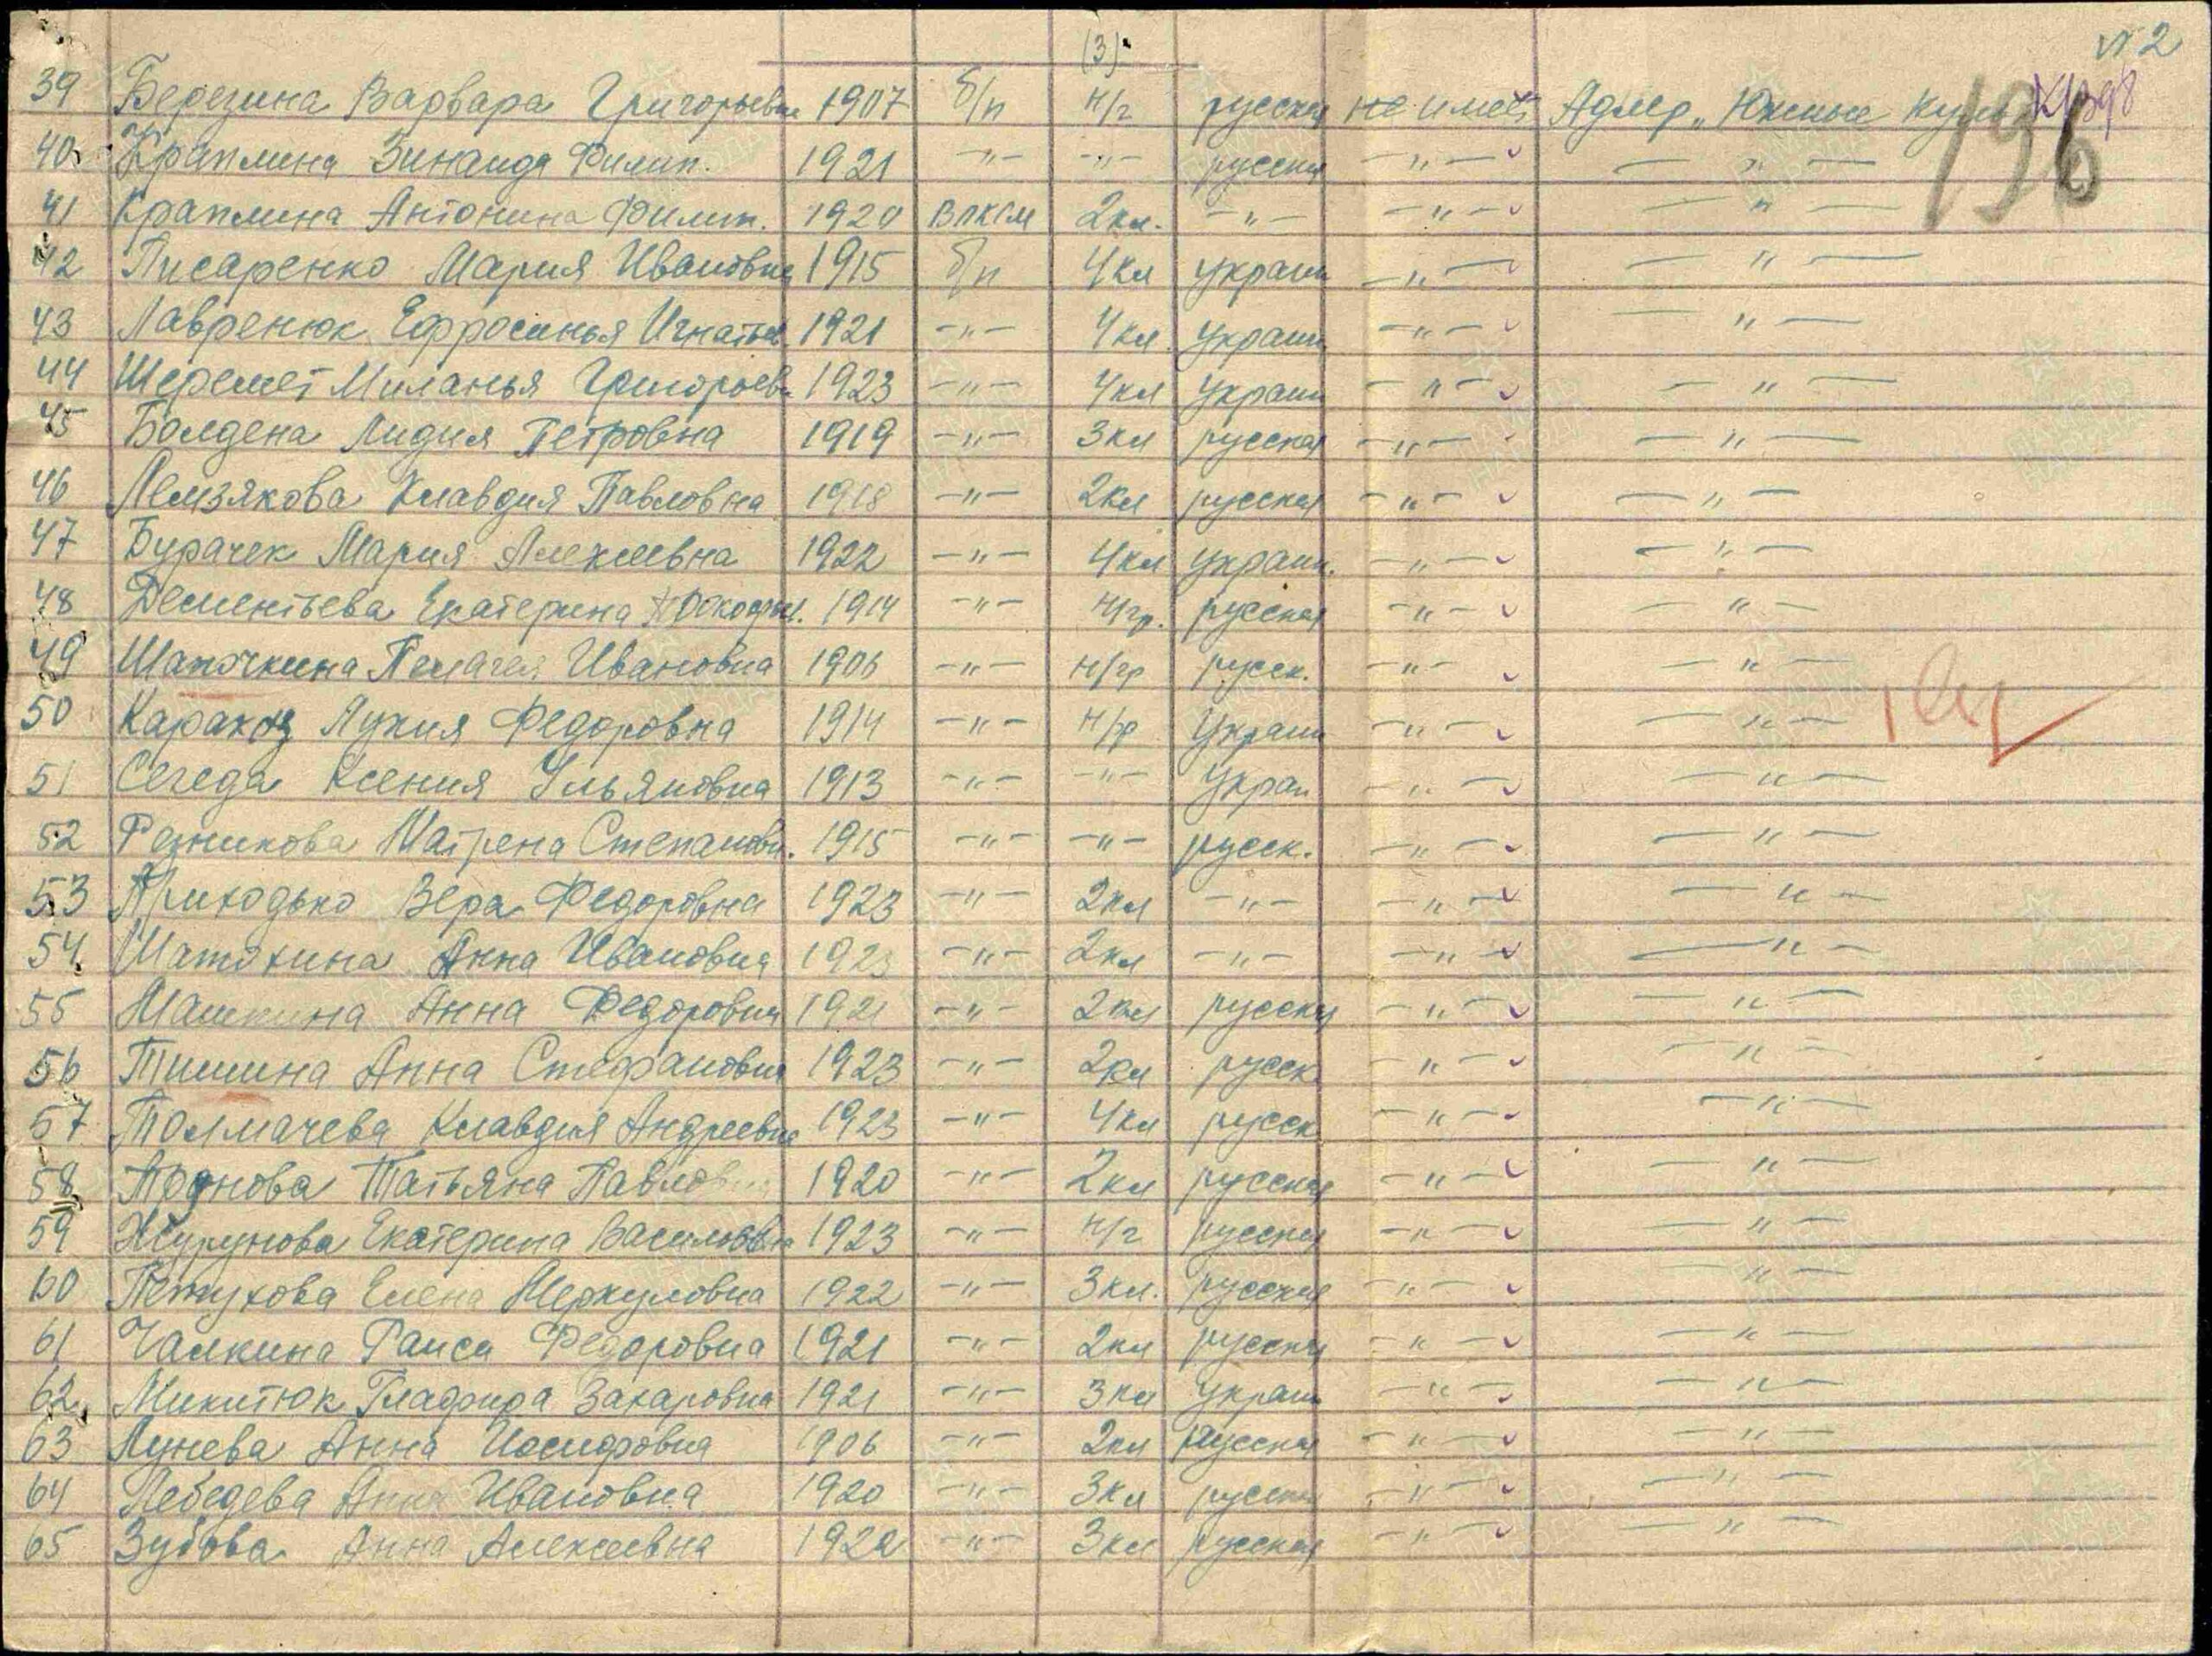 (3)
№ 2
39 Березина Варвара Григорьевна 1907 б/п н/г русская не имеет Адлер „Южные культ
196
40 Краплина Зинаида Филип. 1921 -"- -"- русская -"- -"-
41 Краплина Антонина Филип. 1920 ВЛКСМ 2кл. -"- -"- -"-
42 Писаренко Мария Ивановна 1915 б/п 4кл украин -"- -"-
43 Лавренюк Ефросинья Игнатьев. 1921 -"- 4кл. украин -"- -"-
44 Шеремет Миланья Григорьев. 1923 -"- 4кл украин -"- -"-
45 Болдена Лидия Петровна 1919 -"- 3кл русская -"- -"-
46 Лемзякова Клавдия Павловна 1918 -"- 2кл русская -"- -"-
47 Бурачек Мария Алексеевна 1922 -"- 4кл украин. -"- -"-
48 Дементьева Екатерина Прокофн. 1914 -"- н/гр. русская -"- -"-
49 Шапочкина Пелагея Ивановна 1906 -"- н/гр русск. -"- -"-
50 Лукия Федоровна 1914 -"- н/гр украин -"- -"-
51 Сегеда Ксения Ульяновна 1913 -"- -"- украи -"- -"-
52 Резникова Матрена Степановн. 1915 -"- -"- русск. -"- -"-
53 Приходько Вера Федоровна 1923 -"- 2кл -"- -"- -"-
54 Шатохина Анна Ивановна 1923 -"- 2кл -"- -"- -"-
55 Машкина Анна Федоровна 1921 -"- 2кл русская -"- -"-
56 Тишина Анна Стефановна 1923 -"- 2кл русск -"- -"-
57 Толмачева Клавдия Андреевна 1923 -"- 4кл русск -"- -"-
58 Татьяна Павловна 1920 -"- 2кл русская -"- -"-
59 Екатерина Васильевна 1923 -"- н/г русская -"- -"-
60 Петухова Елена Меркуловна 1922 -"- 3кл. русская -"- -"-
61 Чалкина Раиса Федоровна 1921 -"- 2кл русская -"- -"-
62 Микитюк Гладфира Захаровна 1921 -"- 3кл украин -"- -"-
63 Лунева Анна Иосифовна 1906 -"- 2кл Русская -"- -"-
64 Лебедева Анна Ивановна 1920 -"- 3кл русская -"- -"-
65 Зубова Анна Алексеевна 1922 -"- 3кл русская -"- -"-